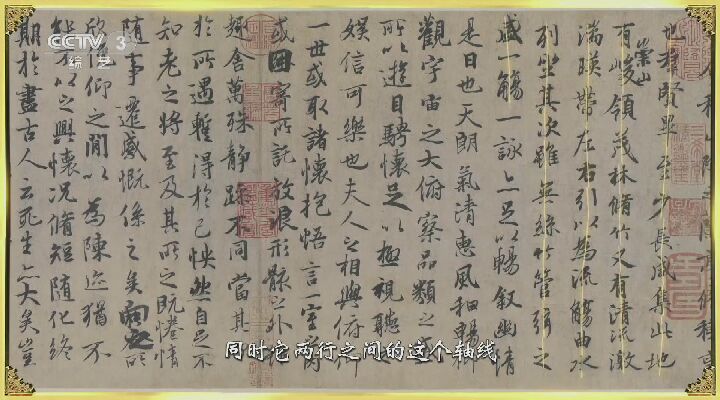 CCTV 3
综艺
也群賢畢至少長咸集此地
有崇山峻領茂林脩竹又有清流激
湍暎帶左右引以為流觴曲水
列坐其次雖無絲竹管弦之
盛一觴一詠亦足以暢敘幽情
是日也天朗氣清惠風和暢
觀宇宙之大俯察品類之
所以遊目騁懷足以極視聽
娛信可樂也夫人之相與俯仰
一世或取諸懷抱悟言一室之內
或因寄所託放浪形骸之外
趣舍萬殊靜躁不同當其
於所遇暫得於己怏然自足不
知老之將至及其所之既惓情
隨事遷感慨係之矣向之所
欣俛仰之間以為陳迹猶不
能不以之興懷況脩短隨化終
期於盡古人云死生亦大矣豈
同时它两行之间的这个轴线